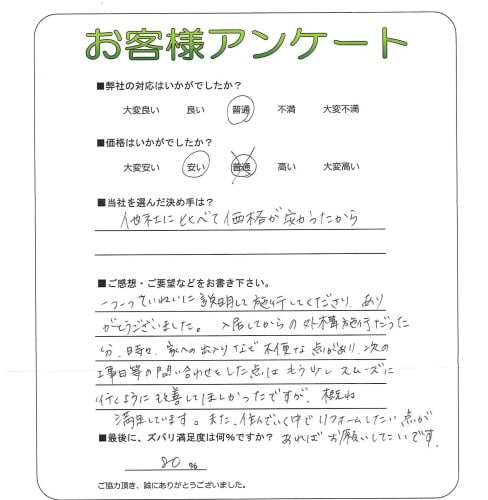 お客様アンケート
■弊社の対応はいかがでしたか?
大変良い 良い 普通 不満 大変不満
■価格はいかがでしたか?
大変安い 安い 普通 高い 大変高い
■当社を選んだ決め手は?
他社に比べて価格が安かったから
■ご感想・ご要望などをお書き下さい。
一つ一つていねいに説明して施行してくださり、あり
がとうございました。 入居してからの外構施行だった
分、日時や、家への出入りなど不便な点があり、次の
工事日等の問い合わせをした点はもう少しスムーズに
行くように改善してほしかったですが、概ね
満足しています。また、住んでいく中でリフォームしたい点が
あればお願いしたいです。
■最後に、ズバリ満足度は何%ですか?
80 %
ご協力頂き、誠にありがとうございました。